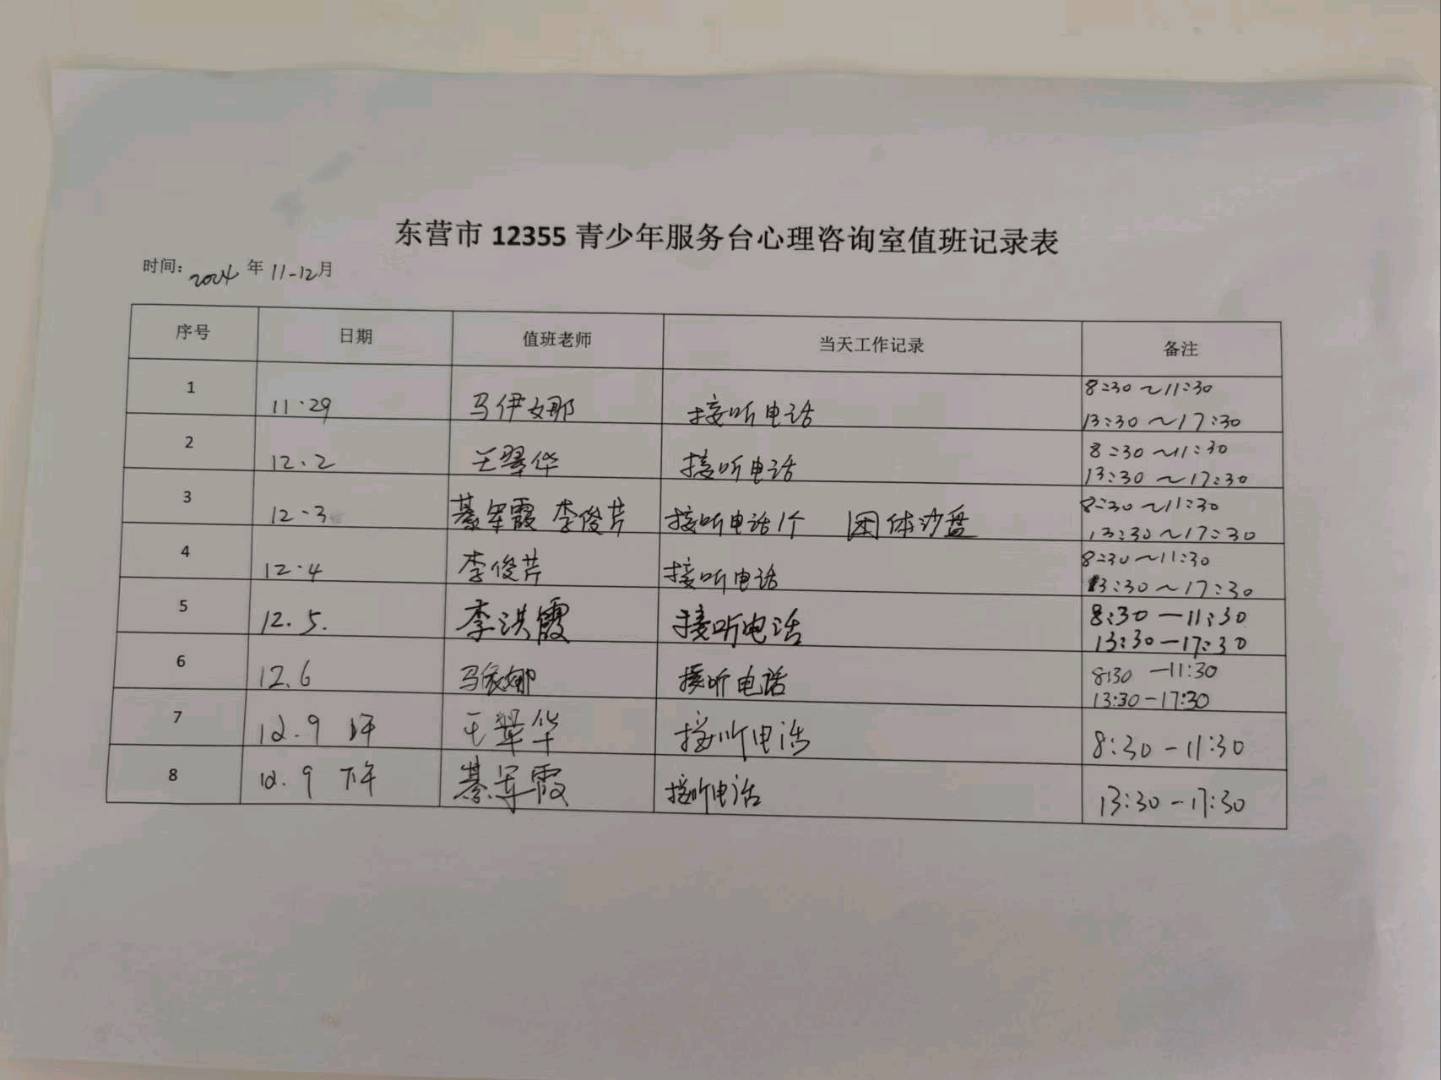 东营市 12355 青少年服务台心理咨询室值班记录表
时间: 2024 年 11-12月
序号 日期 值班老师 当天工作记录 备注
1 11.29 马伊娜 接听电话 8:30~11:30
13:30~17:30
2 12.2 王翠华 接听电话 8:30~11:30
13:30~17:30
3 12.3 綦军霞 李俊芹 接听电话1个 团体沙盘 8:30~11:30
13:30~17:30
4 12.4 李俊芹 接听电话 8:30~11:30
13:30~17:30
5 12.5. 李洪霞 接听电话 8:30—11:30
13:30—17:30
6 12.6 接听电话 8:30—11:30
13:30-17:30
7 12.9 王翠华 接听电话 8:30-11:30
8 12.9 下午 綦军霞 接听电话 13:30-17:30